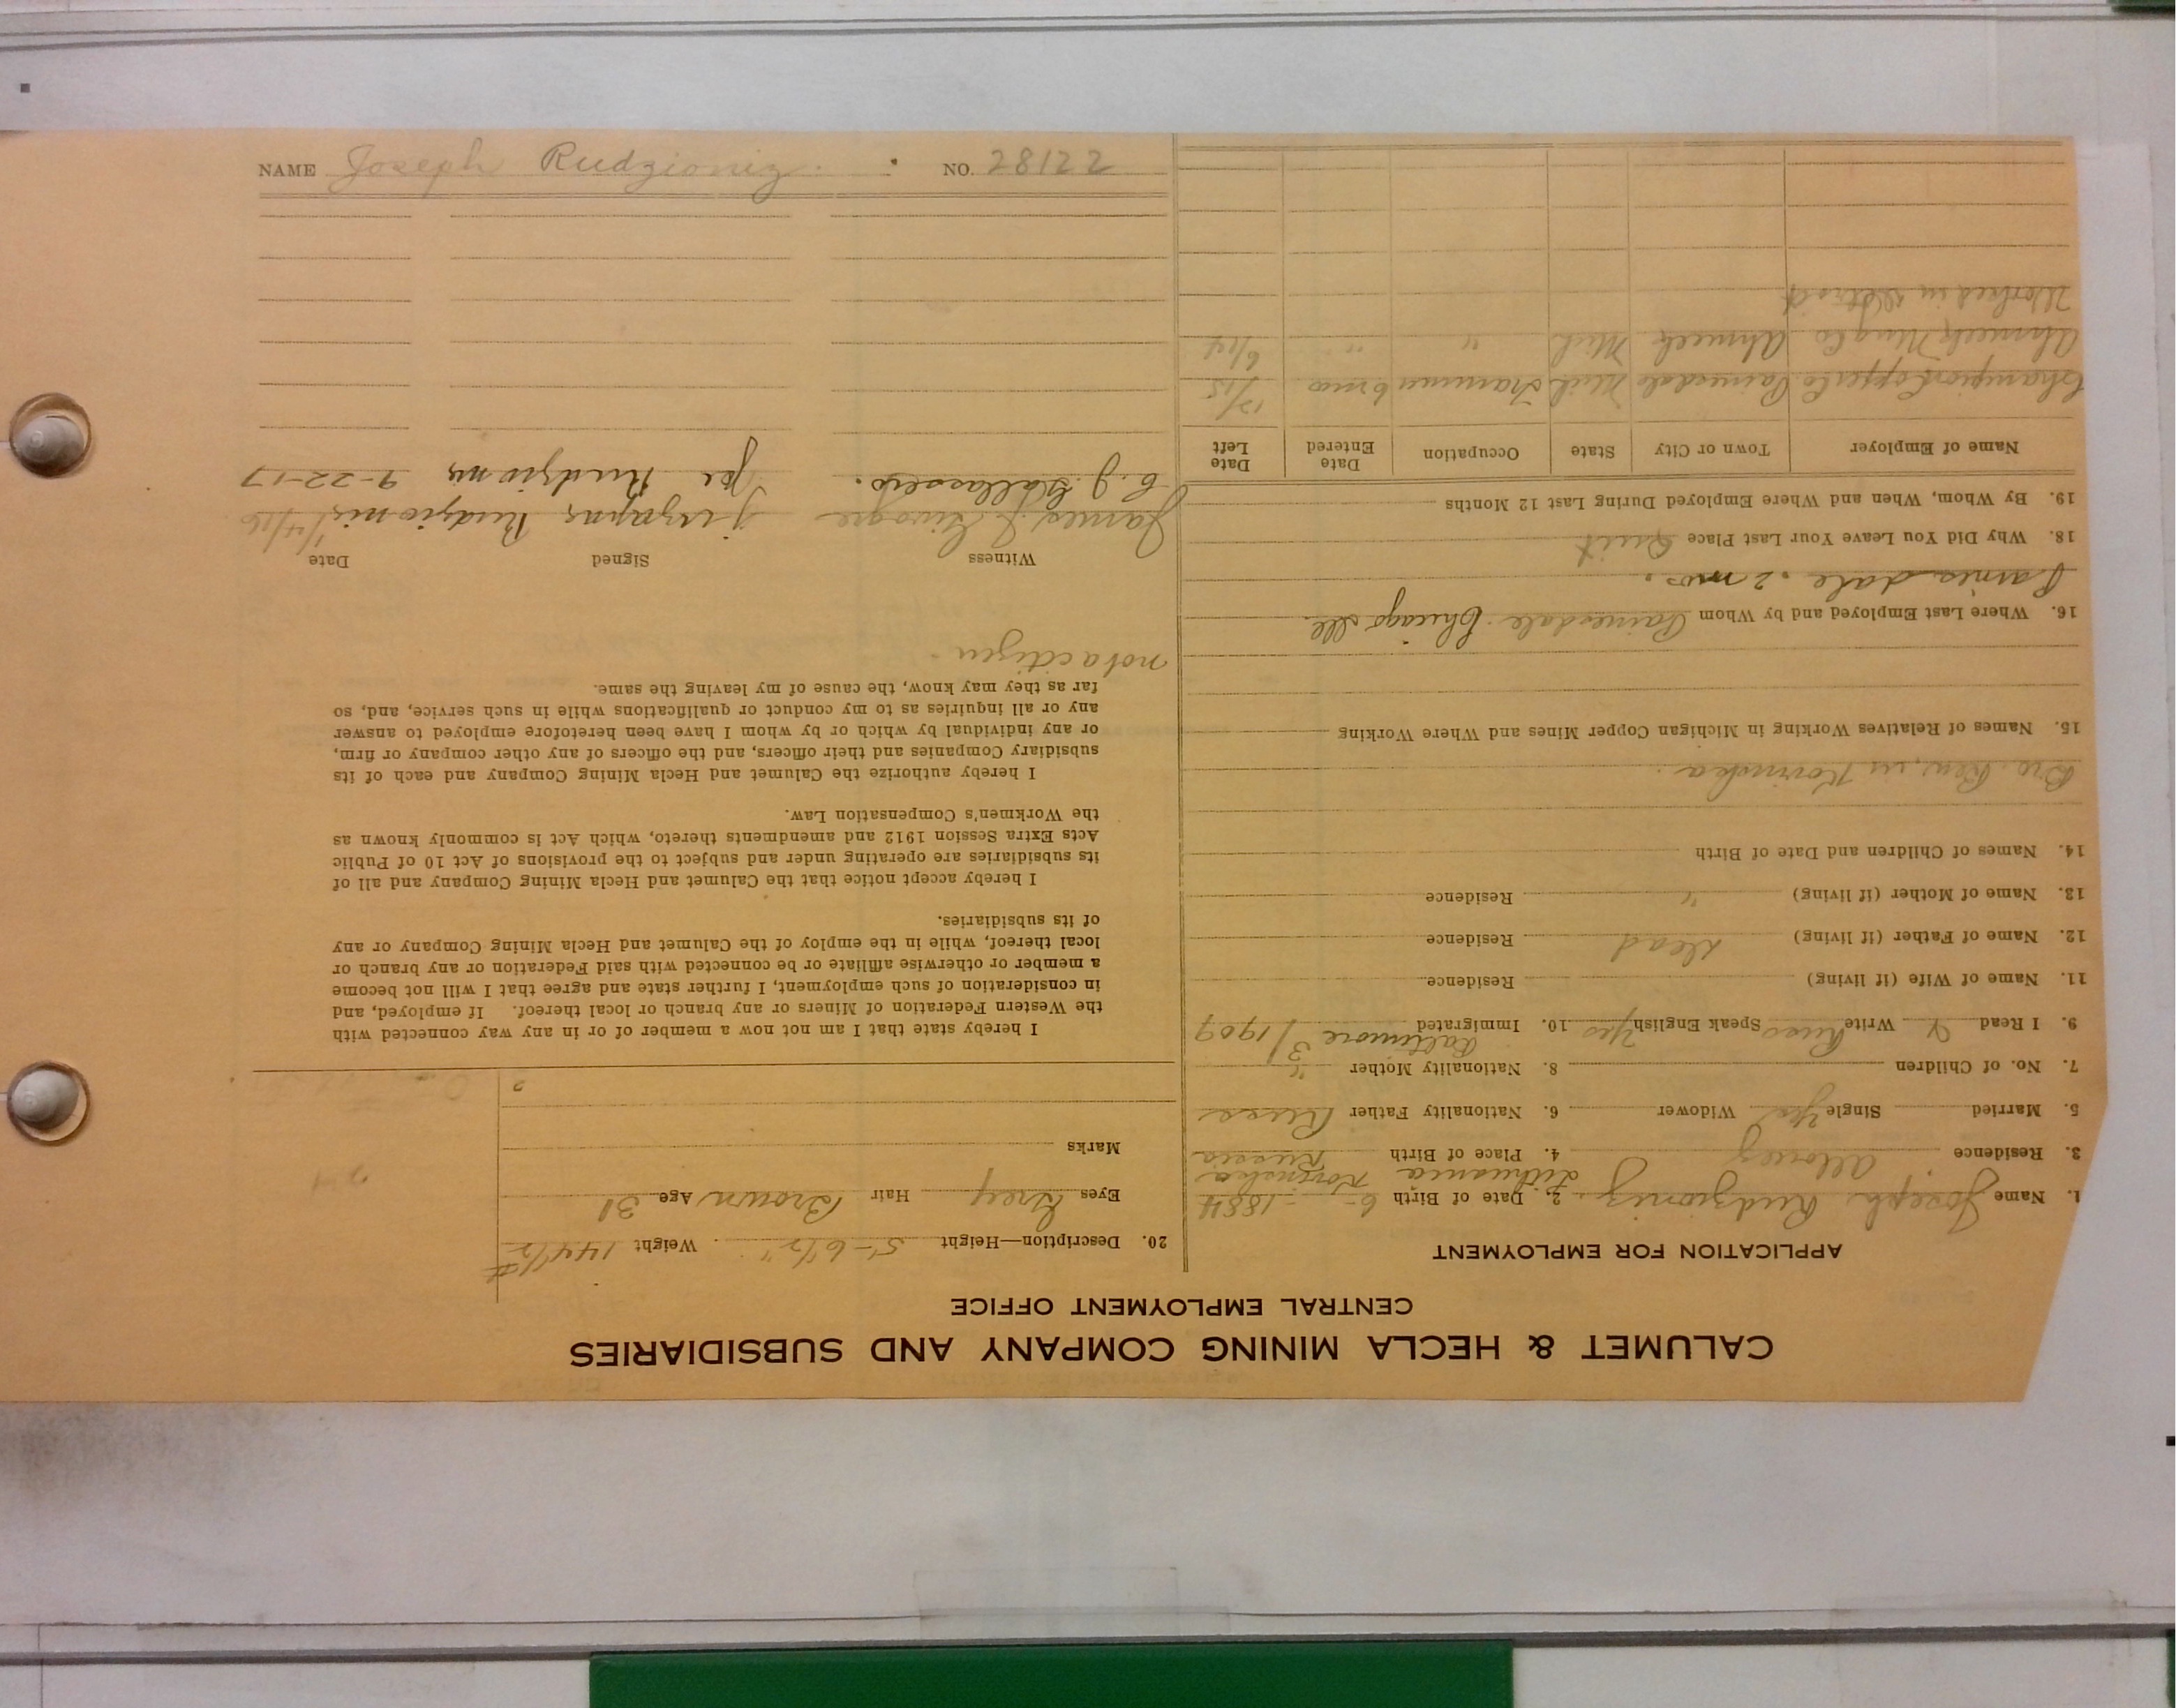 CALUMET & HECLA MINING COMPANY AND SUBSIDIARIES
CENTRAL EMPLOYMENT OFFICE
APPLICATION FOR EMPLOYMENT
1. Name Joseph Rudzioniz 2. Date of Birth 6 - - 1884
Lithuania Kovinska
3. Residence Allouez 4. Place of Birth Russia
5. Married Single Yes Widower 6. Nationality Father Russ
7. No. of Children 8. Nationality Mother "
Baltimore 3/1909
9. I Read Y Write Russ Speak English Yes 10. Immigrated
11. Name of Wife (if living) Residence
12. Name of Father (if living) Dead Residence
13. Name of Mother (if living) " Residence
14. Names of Children and Date of Birth
Bro. in Kovinska.
15. Names of Relatives Working in Michigan Copper Mines and Where Working
16. Where Last Employed and by Whom Painesdale. Chicago Ill
Painesdale. 2 mos.
18. Why Did You Leave Your Last Place Quit
19. By Whom, When and Where Employed During Last 12 Months
Name of Employer Town or City State Occupation Date Entered Date Left
Champion Copper Co Painesdale Mich Trammer 6 mos 12/15
Ahmeek Mng Co Ahmeek Mich " " 6/14
Worked in Detroit
20. Description—Height 5'-6 1/2" Weight 144 1/2 #
Eyes Grey Hair Brown Age 31
Marks
I hereby state that I am not now a member of or in any way connected with
the Western Federation of Miners or any branch or local thereof. If employed, and
in consideration of such employment, I further state and agree that I will not become
a member or otherwise affiliate or be connected with said Federation or any branch or
local thereof, while in the employ of the Calumet and Hecla Mining Company or any
of its subsidiaries.
I hereby accept notice that the Calumet and Hecla Mining Company and all of
its subsidiaries are operating under and subject to the provisions of Act 10 of Public
Acts Extra Session 1912 and amendments thereto, which Act is commonly known as
the Workmen's Compensation Law.
I hereby authorize the Calumet and Hecla Mining Company and each of its
subsidiary Companies and their officers, and the officers of any other company or firm,
or any individual by which or by whom I have been heretofore employed to answer
any or all inquiries as to my conduct or qualifications while in such service, and, so
far as they may know, the cause of my leaving the same.
not a citizen.
Witness Signed Date
James 1/4/16
C. J. Joe Rudzionis 9-22-17
NAME Joseph Rudzioniz. NO. 28122